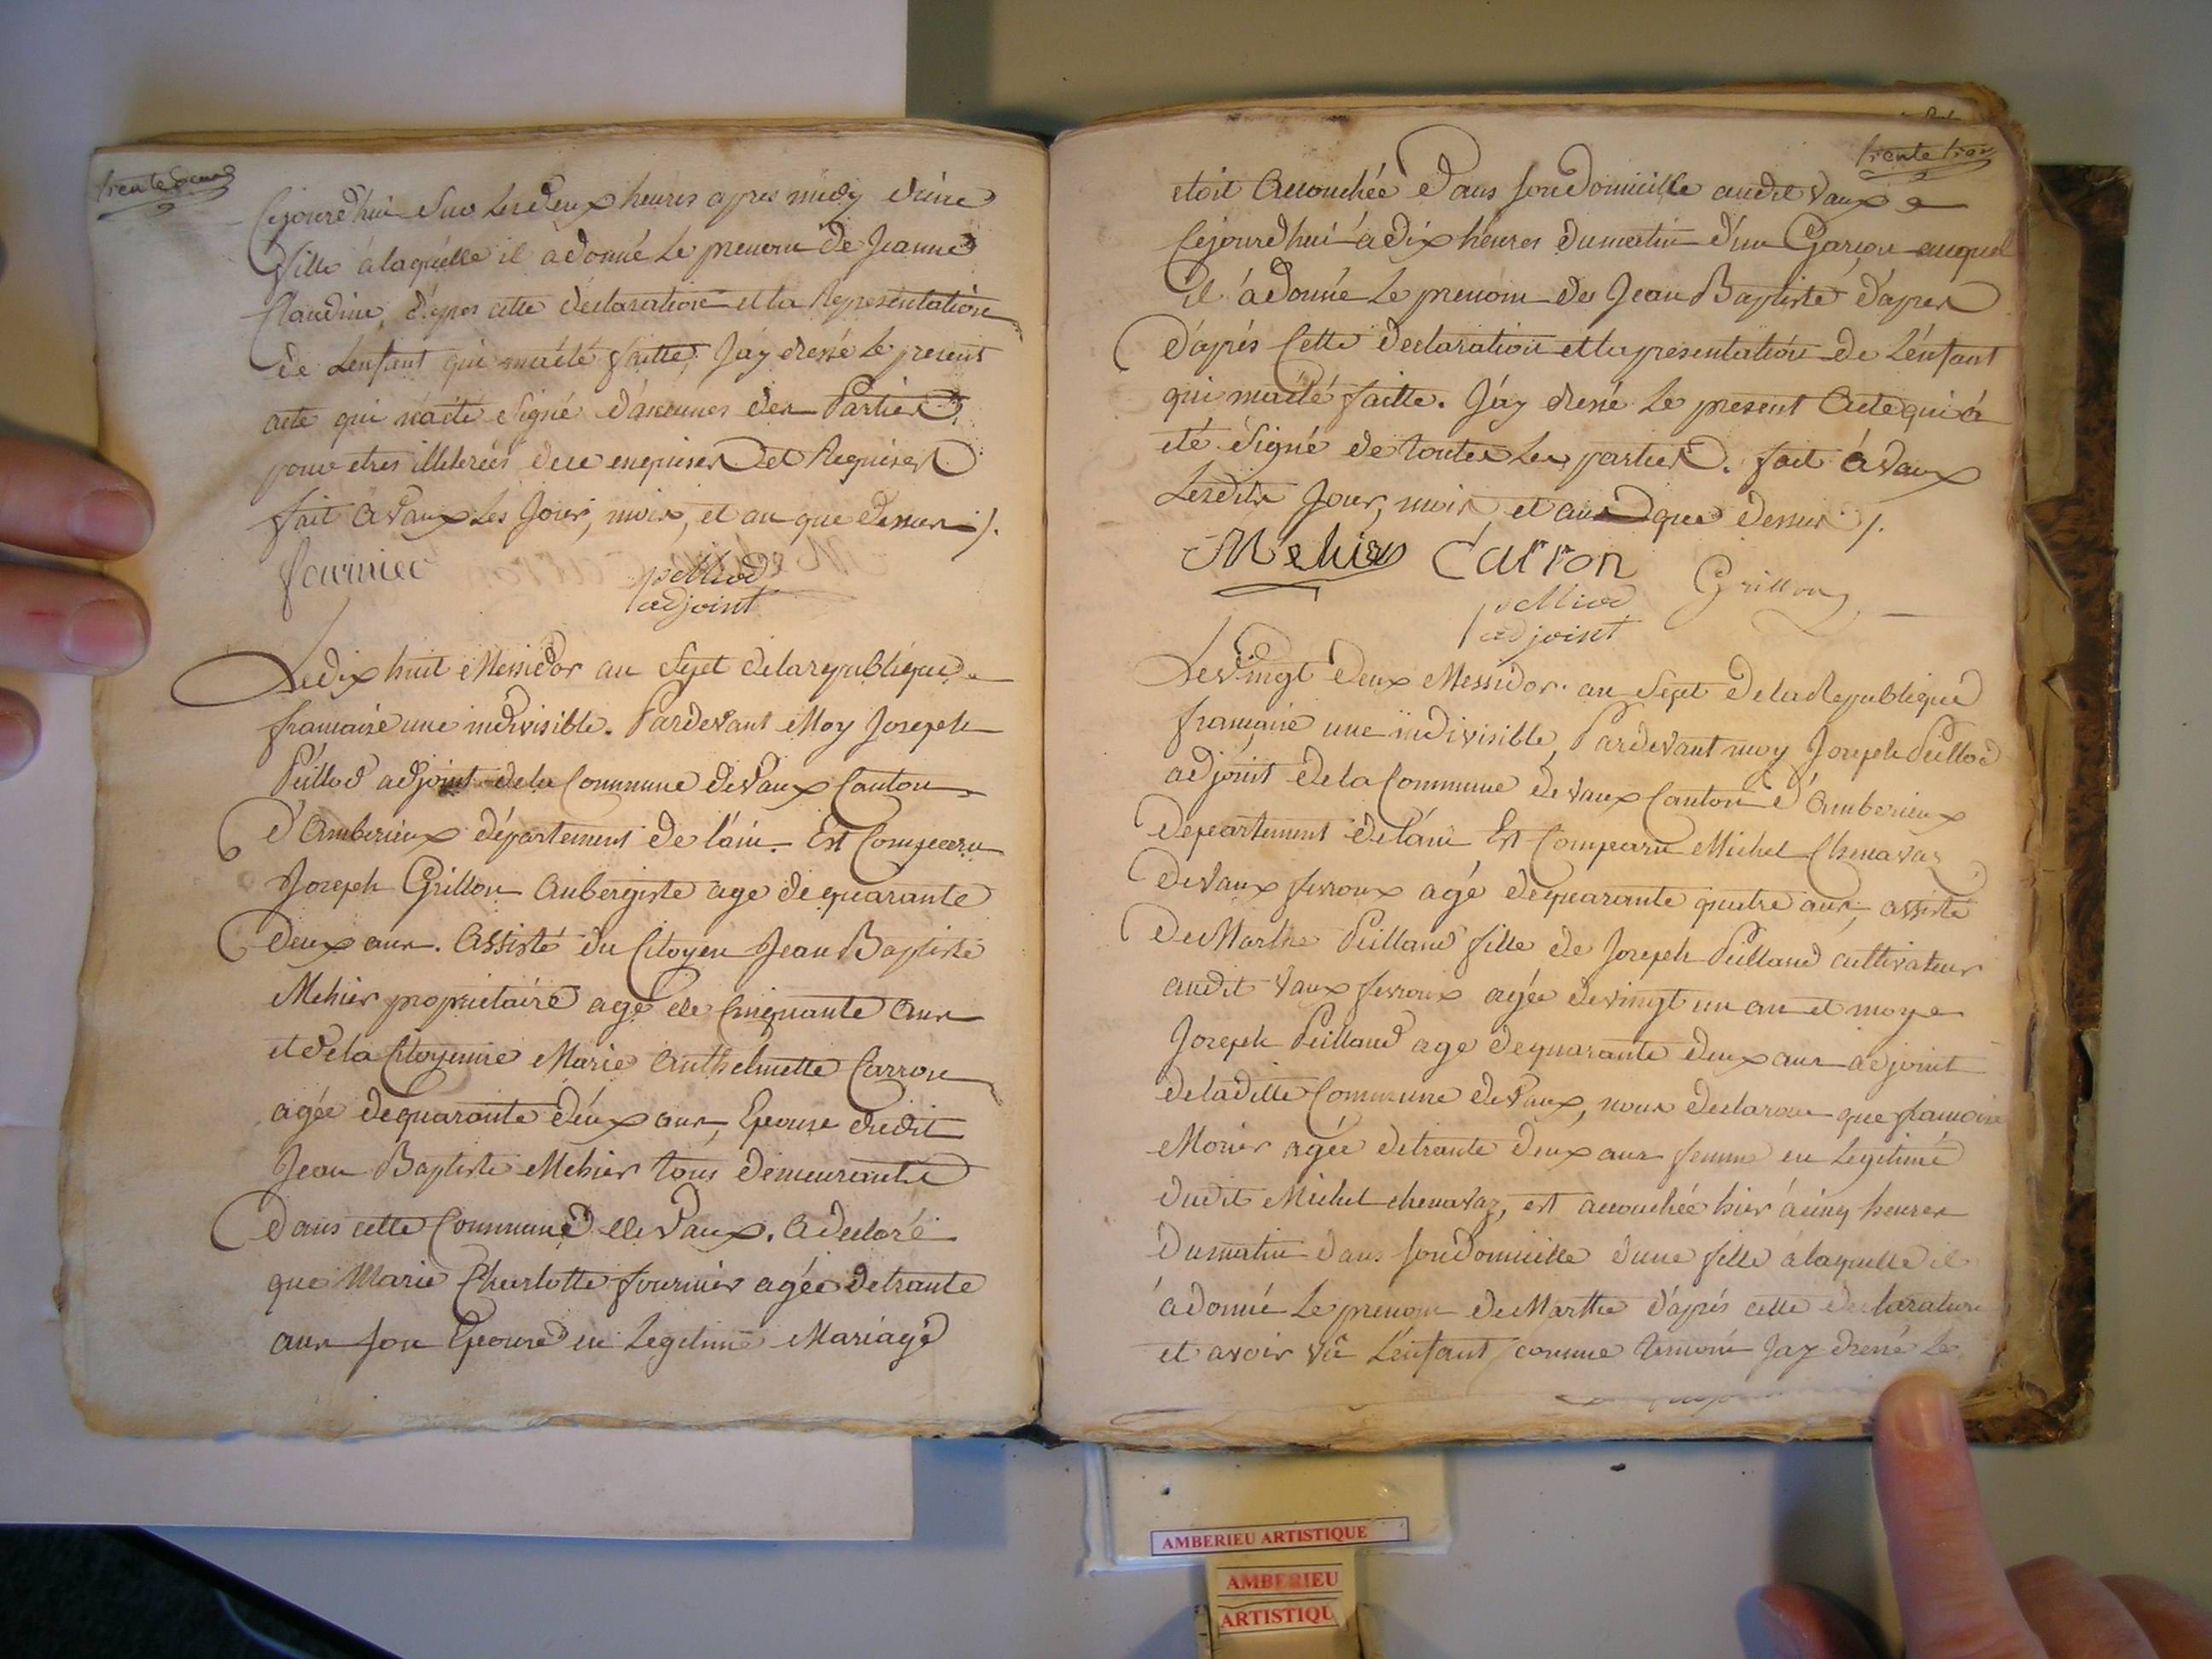 trente deux
Cejourd'hui sur les deux heures apres midy d'une
fille à laquelle il a donné le prenom de Jeanne
Claudine, d'apres cette declaration et la Representation
de L'enfant qui m'a été faitte, J'ay dressé le present
acte qui n'a été signé d'aucunes des Parties
pour etres illiterées de ce enquises et Requises
fait a Vaux Les Jour, mois, et an que dessus ./.
fournier
peilliod
adjoint
Le dix huit Messidor an Sept de la republique
francaise une indivisible. Pardevant Moy Joseph
Peillod adjoint de la Commune de Vaux Canton
d'Amberieux département de l'ain. Est Comparu
Joseph Grillon Aubergiste age de quarante
deux ans. Assisté du Citoyen Jean Baptiste
Mehier proprietaire agé de Cinquante ans
et de la Citoyenne Marie Anthelmette Carron
agée de quarante deux ans, Epouse dudit
Jean Baptiste Mehier tous demeurants
dans cette Commune de Vaux. A declaré
que Marie Charlotte fournier agée de trante
ans son Epouse en Legitime Mariage
trente trois
etoit Accouchée Dans son Domicille audit Vaux
Cejourd'hui à dix heures du matin d'un Garçon auquel
il à donné le prenom de Jean Baptiste d'apres
d'aprés Cette declaration et la presentation de L'enfant
qui m'a été faitte. J'ay dressé Le present Acte qui à
eté signé de toutes Les parties. fait à Vaux
Lesdits Jour, mois et an que dessus ./.
Mehier Carron
Grillon
peilliod
adjoint
Le Vingt deux Messidor an Sept de la Republique
française une indivisible, Pardevant moy Joseph Peillod
adjoint de la Commune de Vaux Canton d'Amberieux
Departement de l'ain Est Comparu Michel Chenavaz
de Vaux fevroux agé de quarante quatre ans, assisté
De Marthe Peilland fille de Joseph Peilland cultivateur
audit Vaux fevroux agée de vingt un an et moy
Joseph Peilland age de quarante deux ans adjoint
de laditte Commune de Vaux, nous declarons que francoise
Monier agée de trante deux ans femme en Legitimé
dudit Michel chenavaz, est accouchée hier à cinq heures
du matin dans son Domicille d'une fille à laquelle il
à donné Le prenom de Marthe d'aprés cette declaration
et avoir vû L'enfant comme temoin Jay dressé Le
AMBERIEU ARTISTIQUE
AMBERIEU
ARTISTIQU